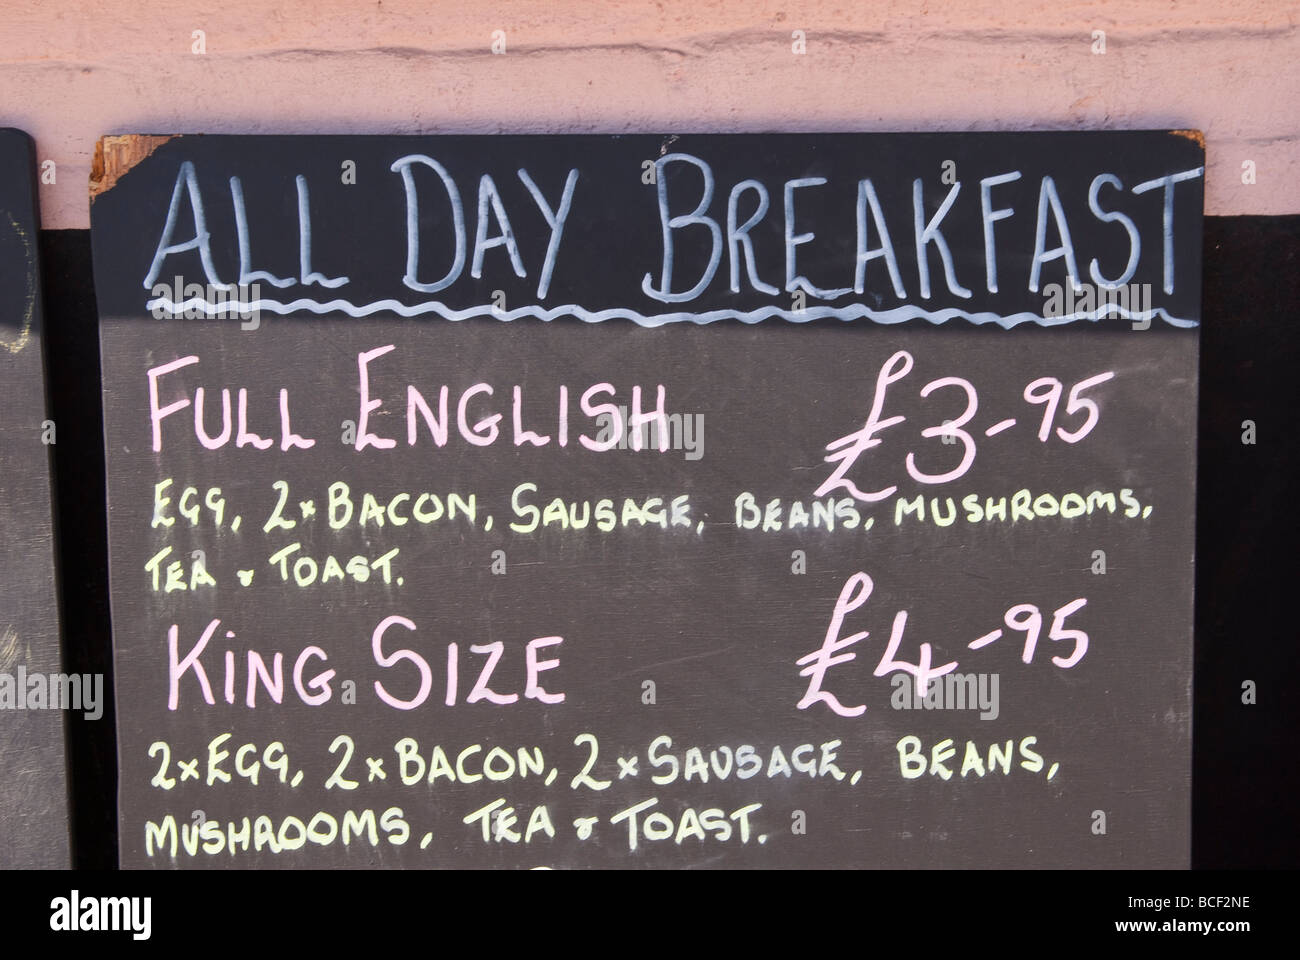 ALL DAY BREAKFAST
FULL ENGLISH £3-95
EGG, 2xBACON, SAUSAGE, BEANS, MUSHROOMS,
TEA & TOAST.
KING SIZE £4-95
2xEGG, 2xBACON, 2xSAUSAGE, BEANS,
MUSHROOMS, TEA & TOAST.
alamy
Image ID: BCF2NE
www.alamy.com